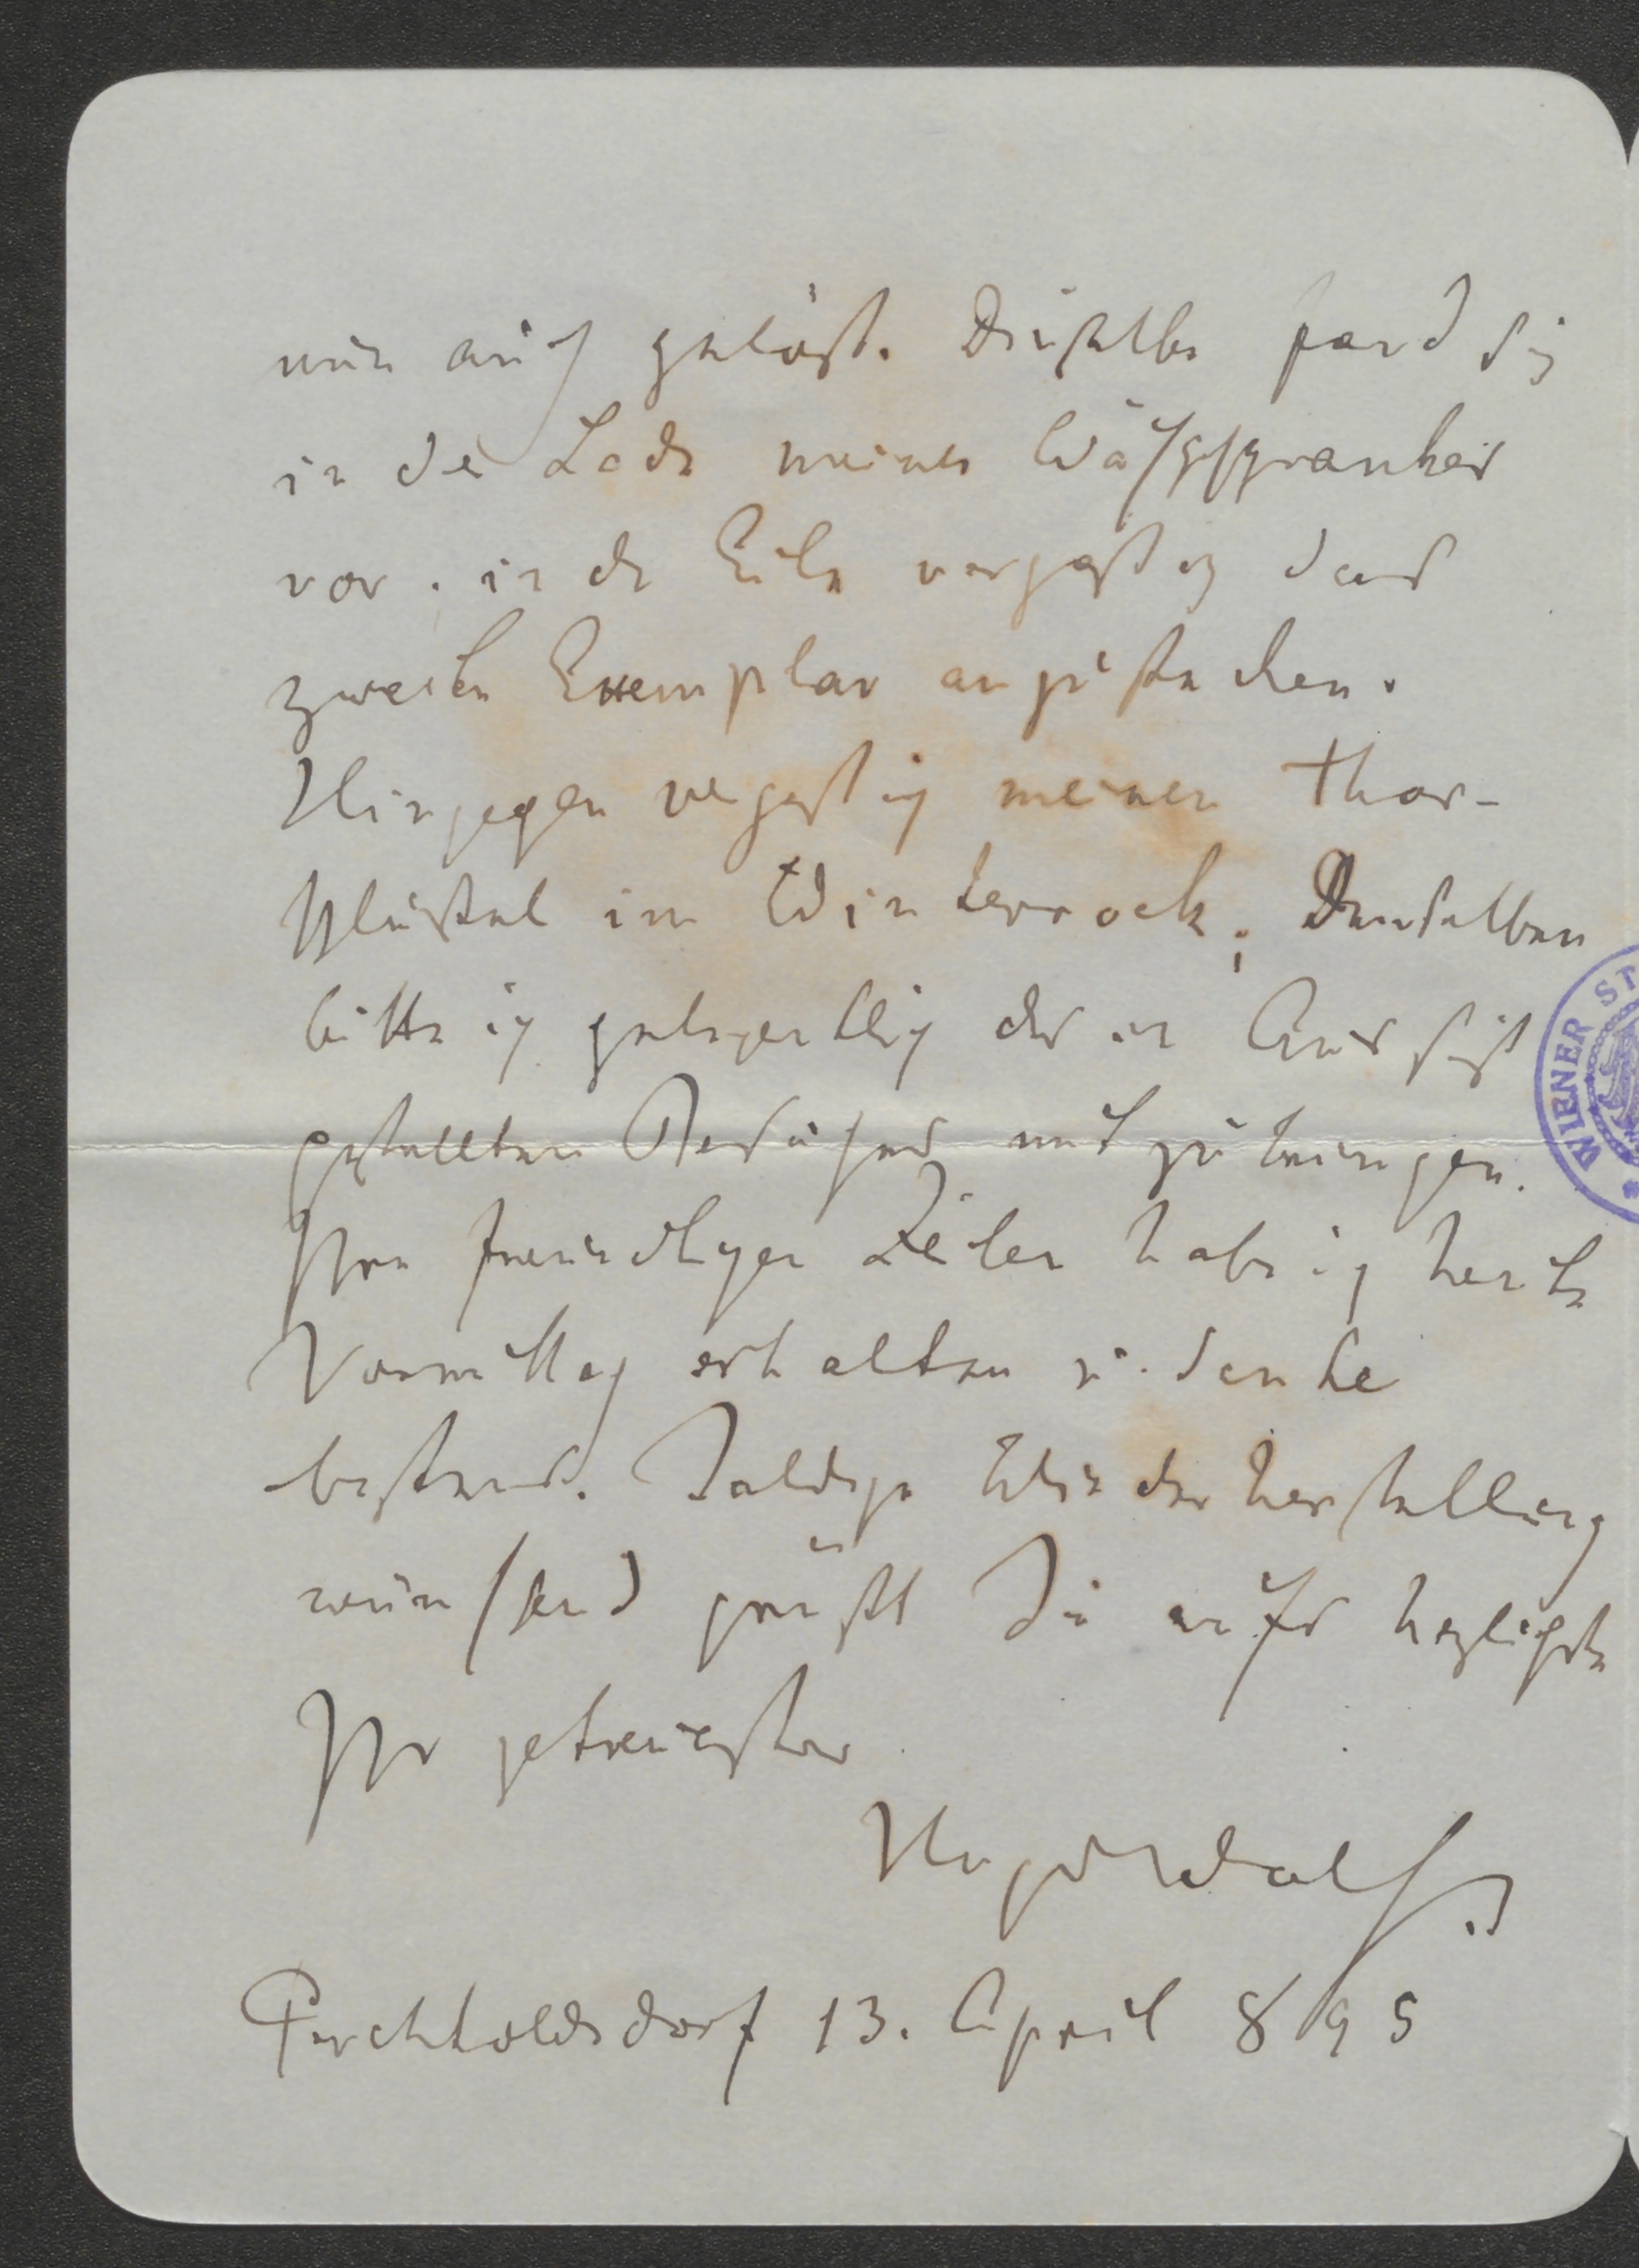 nun auch gelöst. Dieselbe fand sich
in der Lade meines Wäschschrankes
vor. in der Eile vergaß ich das
zweite Exemplar anzustecken.
Hingegen vergaß ich meinen Thor-
schlüssel im Winterrock; Denselben
bitte ich gelegentlich des in Aussicht
gestellten Besuches mitzubringen.
Ihre freundlichen Zeilen habe ich heute
Vormittag erhalten u. danke
bestens. Baldige Wiederherstellung
wünschend grüßt Sie aufs herzlichste
Ihr getreuester
Hugo Wolf
Perchtoldsdorf 13. April 895
WIENER ST